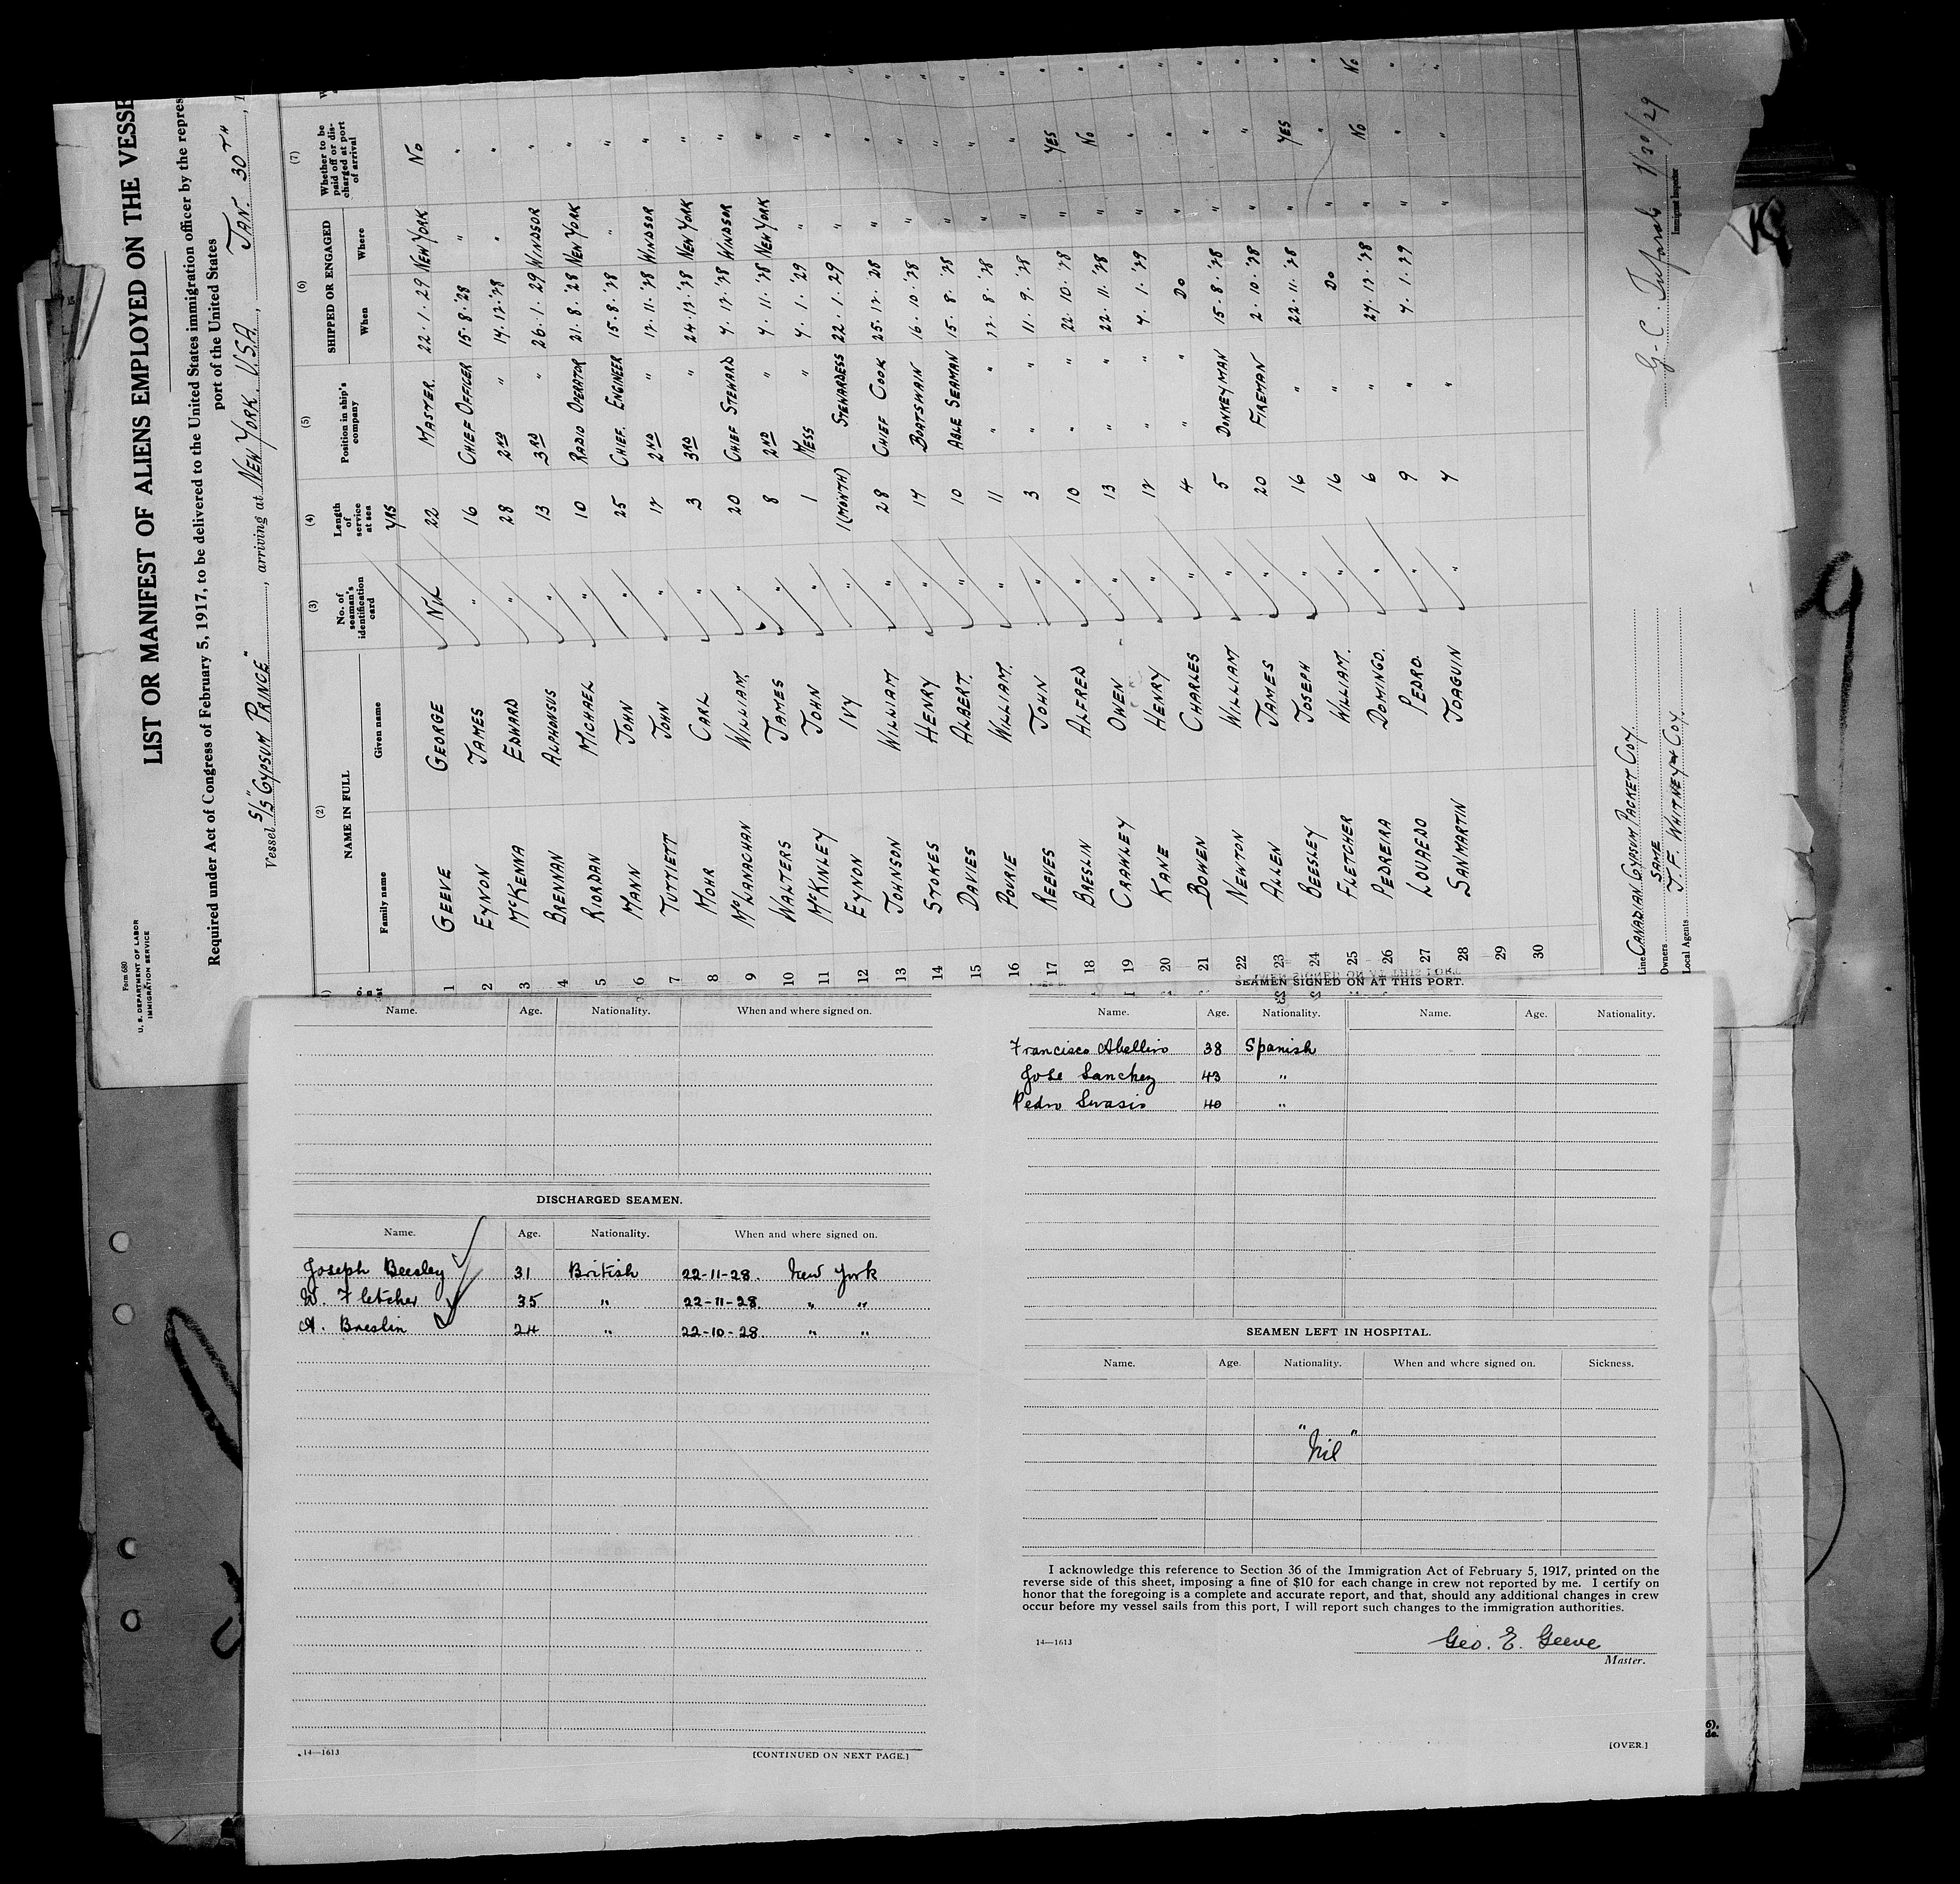 Form 680
U. S. DEPARTMENT OF LABOR
IMMIGRATION SERVICE
LIST OR MANIFEST OF ALIENS EMPLOYED ON THE VESSE
Required under Act of Congress of February 5, 1917, to be delivered to the United States immigration officer by the repres
port of the United States
Vessel S/S "GYPSUM PRINCE", arriving at NEW YORK. U.S.A., JAN. 30TH, 1
(2) (3) (4) (5) (6) (7)
NAME IN FULL
Family name Given name
No. of seaman's identification card
Length of service at sea
YRS
Position in ship's company
SHIPPED OR ENGAGED
When Where
Whether to be paid off or discharged at port of arrival
1 GEEVE GEORGE NIL 22 MASTER. 22.1.29 NEW YORK NO
2 EYNON JAMES " 16 CHIEF OFFICER 15.8.'28 " "
3 McKENNA EDWARD " 28 2ND " 14.12.'28 " "
4 BRENNAN ALPHONSUS " 13 3RD " 26.1.29 WINDSOR "
5 RIORDAN MICHAEL " 10 RADIO OPERATOR 21.8.'28 NEW YORK "
6 MANN JOHN " 25 CHIEF. ENGINEER 15.8.'28 " "
7 TUTTIETT JOHN " 12 2ND " 12.11.'28 WINDSOR "
8 MOHR CARL " 3 3RD " 24.12.'28 NEW YORK "
9 WILLIAM. " 20 CHIEF STEWARD 4.12.'28 WINDSOR "
10 WALTERS JAMES " 8 2ND " 4.11.'28 NEW YORK "
11 McKINLEY JOHN " 1 MESS " 4.1.'29 " "
12 EYNON IVY " 1 (MONTH) STEWARDESS 22.1.29 " "
13 JOHNSON WILLIAM " 28 CHIEF COOK 25.12.28 " "
14 STOKES HENRY " 14 BOATSWAIN 16.10.'28 " "
15 DAVIES ALBERT. " 10 ABLE SEAMAN 15.8.'28 " "
16 POURIE WILLIAM. " 11 " " 22.8.'28 " "
17 REEVES JOHN " 3 " " 11.9.'28 " "
18 BRESLIN ALFRED " 10 " " 22.10.'28 " YES
19 CRAWLEY OWEN " 13 " " 22.11.'28 " NO
20 KANE HENRY " 12 " " 4.1.'29 " "
21 BOWEN CHARLES " 4 " " DO " "
22 NEWTON WILLIAM " 5 DONKEYMAN 15.8.'28 " "
23 ALLEN JAMES " 20 FIREMAN 2.10.'28 " "
24 BEESLEY JOSEPH " 16 " 22.11.'28 " YES
25 FLETCHER WILLIAM. " 16 " DO " "
26 PEDREIRA DOMINGO. " 6 " 27.12.'28 " NO
27 LOUAEDO PEDRO. " 9 " 4.1.29 " "
28 SANMARTIN JOAQUIN " 4 " " "
29
30
Line CANADIAN GYPSUM PACKET COY.
Owners SAME
Local Agents J.F. WHITNEY & COY.
1/30/29
Immigrant Inspector
Name. Age. Nationality. When and where signed on.
DISCHARGED SEAMEN.
Name. Age. Nationality. When and where signed on.
Joseph Beesley 31 British 22-11-28. New York
W. Fletcher 35 " 22-11-28. " "
A. Breslin 24 " 22-10-28. " "
14—1613 [CONTINUED ON NEXT PAGE.]
SEAMEN SIGNED ON AT THIS PORT.
Name. Age. Nationality. Name. Age. Nationality.
Francisco 38 Spanish
Jose Sanchez 43 "
Pedro 40 "
SEAMEN LEFT IN HOSPITAL.
Name. Age. Nationality. When and where signed on. Sickness.
"Nil"
I acknowledge this reference to Section 36 of the Immigration Act of February 5, 1917, printed on the
reverse side of this sheet, imposing a fine of $10 for each change in crew not reported by me. I certify on
honor that the foregoing is a complete and accurate report, and that, should any additional changes in crew
occur before my vessel sails from this port, I will report such changes to the immigration authorities.
14—1613
Geo. E. Geeve
Master.
[OVER.]